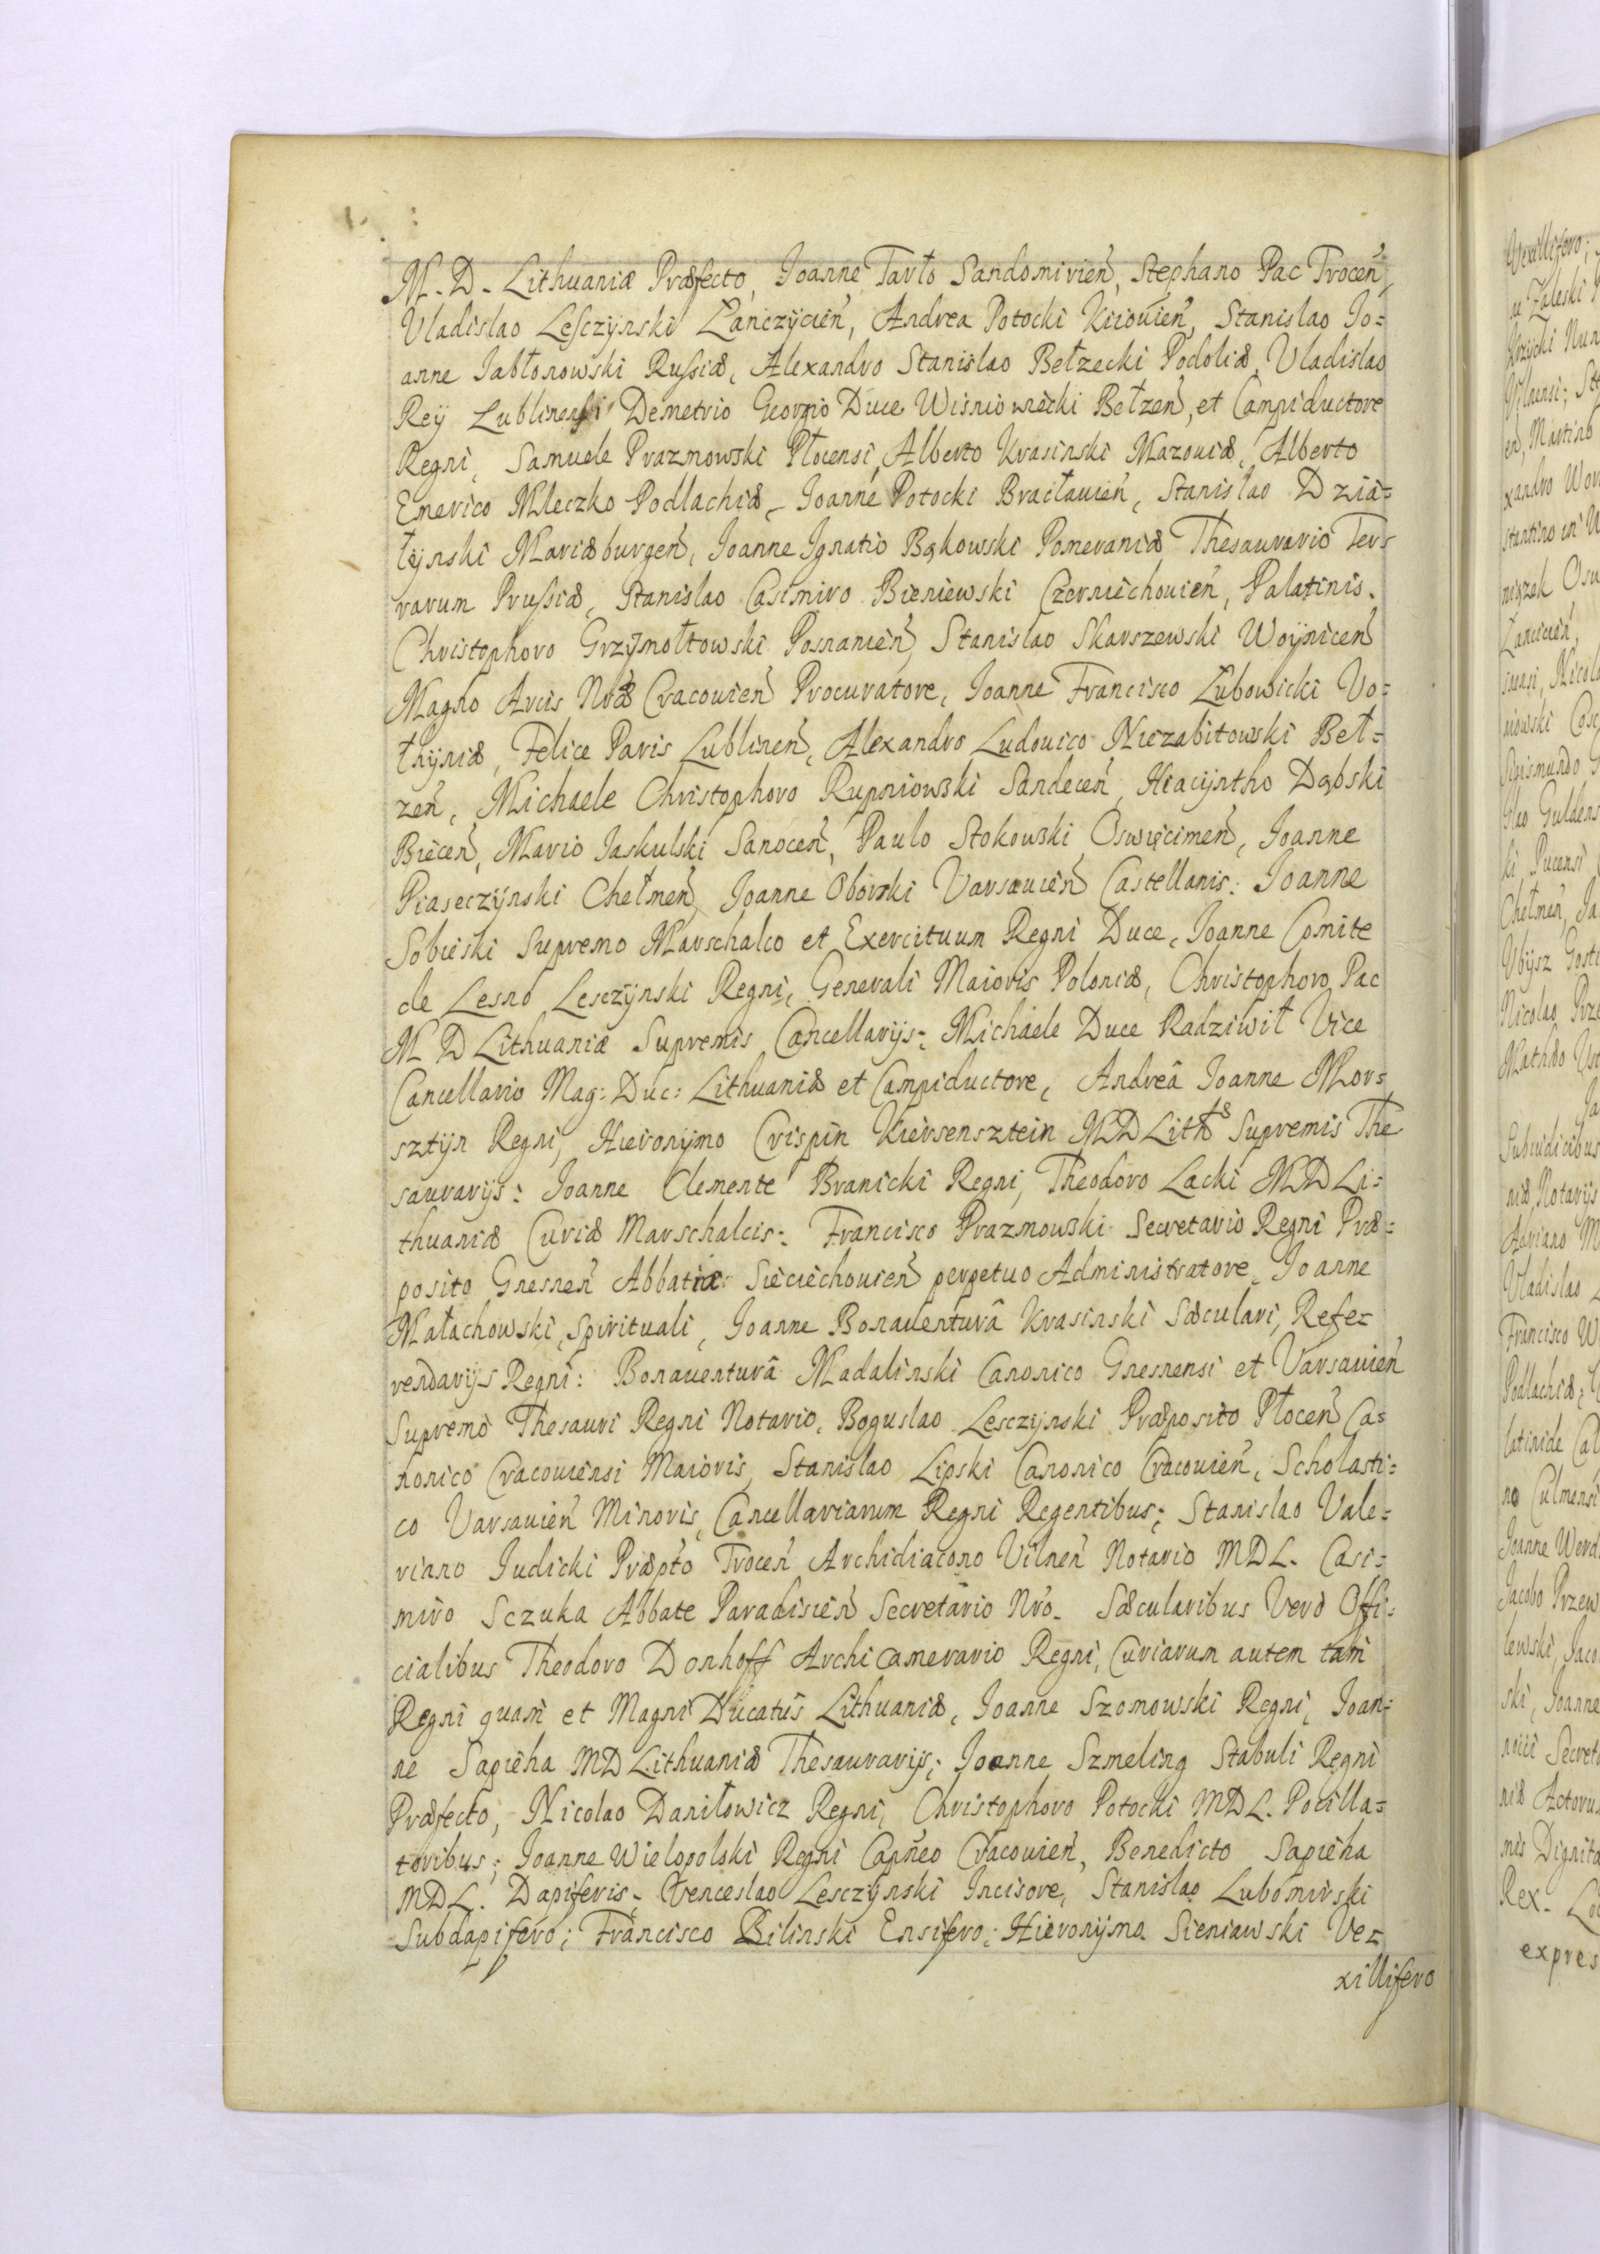 M. D. Lithuaniæ Præfecto, Joanne Tarło Sandomirień, Stephano Pac Troceń,
Vladislao Lesczynski Łańczycień, Andrea Potocki Kiiovień, Stanislao Jo=
anne Jabłonowski Russiæ, Alexandro Stanislao Bełzecki Podoliæ, Vladislao
Reÿ Lublinensi Demetrio Georgio Duce Wisniowiecki Bełzeń, et Campiductore
Regni, Samuele Prazmowski Płocensi, Alberto Krasinski Mazouiæ, Alberto
Emerico Mleczko Podlachiæ, Joanne Potocki Bracłauień, Stanislao Dzia=
łÿnski Mariæburgeń, Joanne Ignatio Bąkowski Pomeraniæ Thesaurario Ter=
rarum Prussiæ, Stanislao Casimiro Bieniewski Czerniechouień, Palatinis.
Christophoro Grzÿmołtowski Posnanień, Stanislao Skarszewski Woÿniceń
Magno Arcis Nræ Cracouień Procuratore, Joanne Francisco Lubowicki Vo=
łhÿniæ, Felice Paris Lublineń, Alexandro Ludouico Niezabitowski Beł=
zeń, Michaele Christophoro Rupniowski Sandeceń, Hiacÿntho Dąbski
Bieceń, Mario Jaskulski Sanoceń, Paulo Stokowski Oswięcimeń, Joanne
Piaseczÿnski Chełmeń, Joanne Oborski Varsauień Castellanis: Joanne
Sobieski Supremo Marschalco et Exercituum Regni Duce, Joanne Comite
de Lesno Lesczÿnski Regni, Generali Maioris Poloniæ, Christophoro Pac
M D Lithuaniæ Supremis Cancellarijs; Michaele Duce Radziwił Vice
Cancellario Mag: Duc: Lithuaniæ et Campiductore, Andreâ Joanne Mor=
sztÿn Regni, Hieronÿmo Crispin Kiersensztein MD Lithæ Supremis The
saurarijs: Joanne Clemente Branicki Regni, Theodoro Lacki MD Li=
thuaniæ Curiæ Marschalcis: Francisco Prazmowski Secretario Regni Præ=
posito Gnesneń Abbatiæ Sieciechouień perpetuo Administratore, Joanne
Małachowski, Spirituali, Joanne Bonauenturâ Krasinski Sæculari, Refe=
rendarijs Regni: Bonauenturâ Madalinski Canonico Gnesnensi et Varsauień
Supremo Thesauri Regni Notario, Boguslao Lesczÿnski Præposito Płoceń Ca=
nonico Cracouiensi Maioris, Stanislao Lipski Canonico Cracouień, Scholasti=
co Varsauień Minoris, Cancellariarum Regni Regentibus; Stanislao Vale=
riano Judicki Præpto Troceń Archidiacono Vilneń Notario MDL. Casi=
miro Sczuka Abbate Paradisień Secretario Nro. Sæcularibus Verò Offi=
cialibus Theodoro Donhoff Archicamerario Regni, Curiarum autem tam
Regni quam et Magni Ducatûs Lithuaniæ, Joanne Szomowski Regni, Joan=
ne Sapieha MD Lithuaniæ Thesaurarijs; Joanne Szmeling Stabuli Regni
Præfecto, Nicolao Daniłowicz Regni, Christophoro Potocki MDL. Pocilla=
toribus; Joanne Wielopolski Regni Capneo Cracouień, Benedicto Sapieha
MDL. Dapiferis, Venceslao Lesczÿnski Incisore, Stanislao Lubomirski
Subdapifero; Francisco Bilinski Ensifero; Hieronÿmo Sieniawski Ve=
xillifero